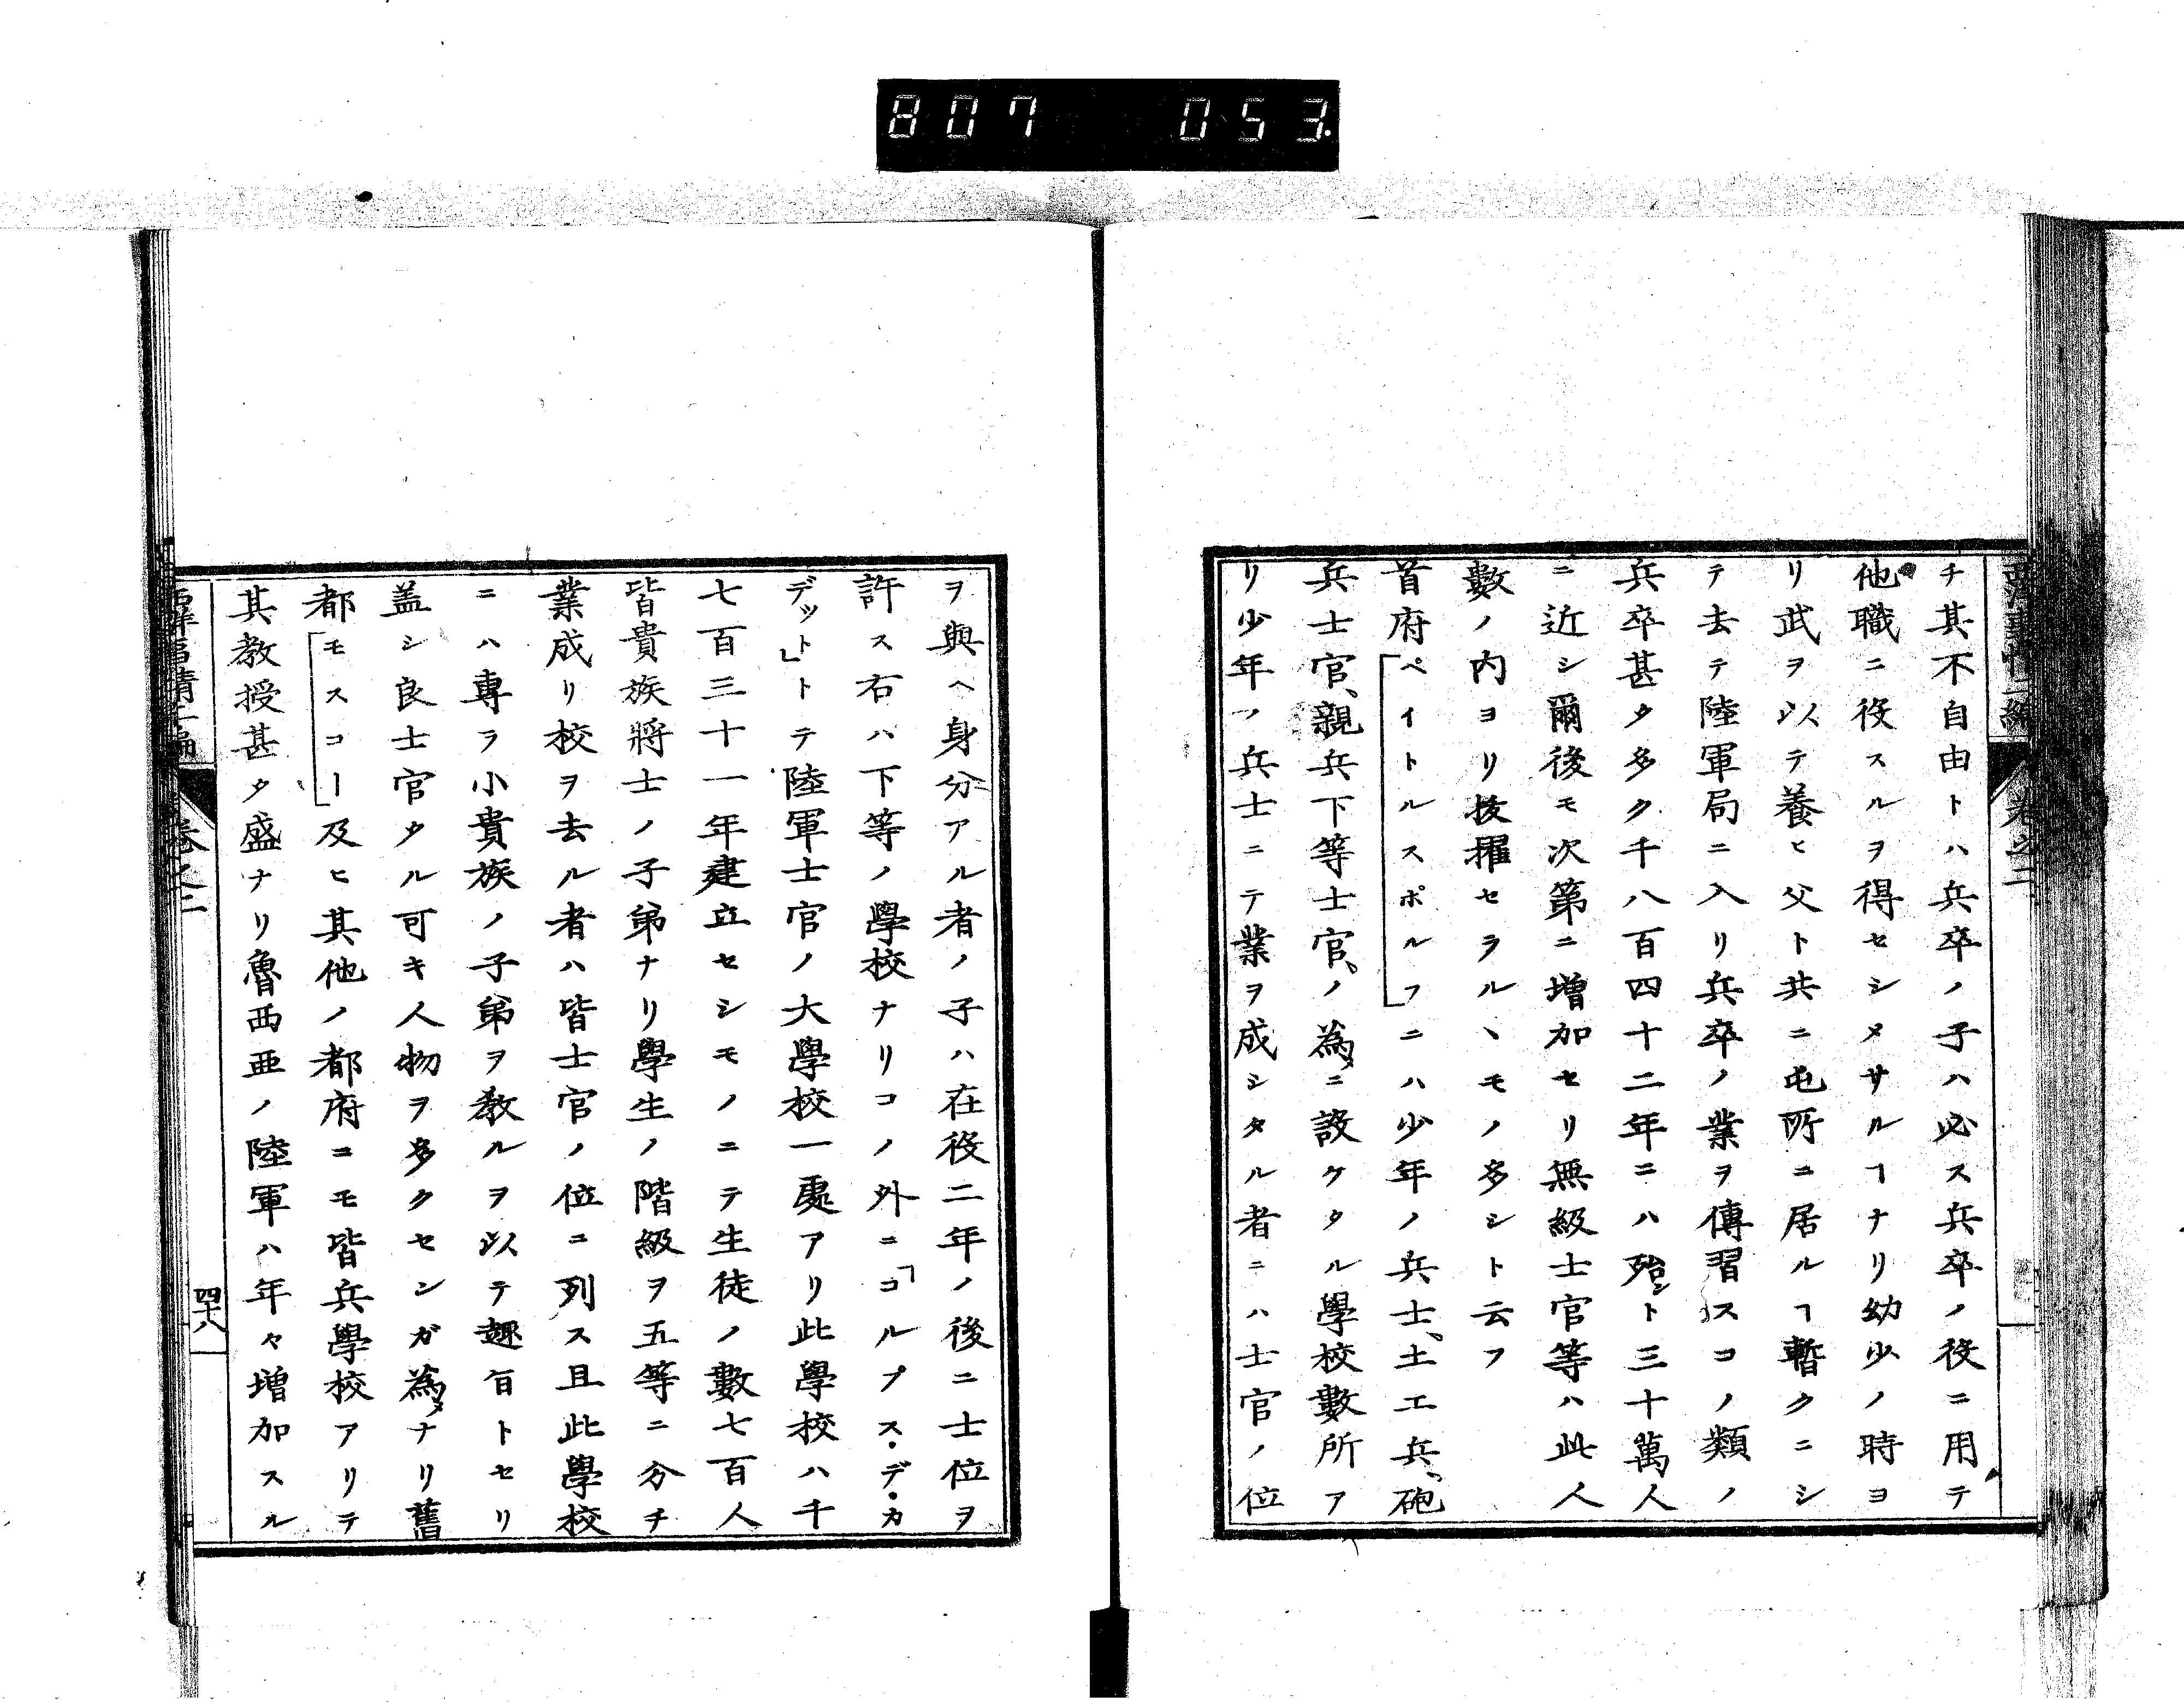 807 053.
チ其不自由トハ兵卒ノ子ハ必ス兵卒ノ役ニ用テ
他職ニ役スルヲ得セシメサルヿナリ幼少ノ時ヨ
リ武ヲ以テ養ヒ父ト共ニ屯所ニ居ルヿ暫クニシ
テ去テ陸軍局ニ入リ兵卒ノ業ヲ傳習スコノ類ノ
兵卒甚タ多ク千八百四十二年ニハ殆ント三十萬人
ニ近シ爾後モ次第ニ増加セリ無級士官等ハ此人
數ノ内ヨリ抜擢セラルヽモノ多シト云フ
首府「ペイトルスポルフ」ニハ少年ノ兵士、土工兵、砲
兵士官、親兵下等士官、ノ為メニ設ケタル學校數所ア
リ少年ノ兵士ニテ業ヲ成シタル者ニハ士官ノ位
ヲ與ヘ身分アル者ノ子ハ在役二年ノ後ニ士位ヲ
許ス右ハ下等ノ學校ナリコノ外ニ「コルプス・デ・カ
デット」トテ陸軍士官ノ大學校一處アリ此學校ハ千
七百三十一年建立セシモノニテ生徒ノ數七百人
皆貴族將士ノ子弟ナリ學生ノ階級ヲ五等ニ分チ
業成リ校ヲ去ル者ハ皆士官ノ位ニ列ス且此學校
ニハ專ラ小貴族ノ子弟ヲ教ルヲ以テ趣旨トセリ
盖シ良士官タル可キ人物ヲ多クセンガ為メナリ舊
都「モスコー」及ヒ其他ノ都府ニモ皆兵學校アリテ
其教授甚タ盛ナリ魯西亜ノ陸軍ハ年々増加スル
西洋事情二編 卷之二 四十八